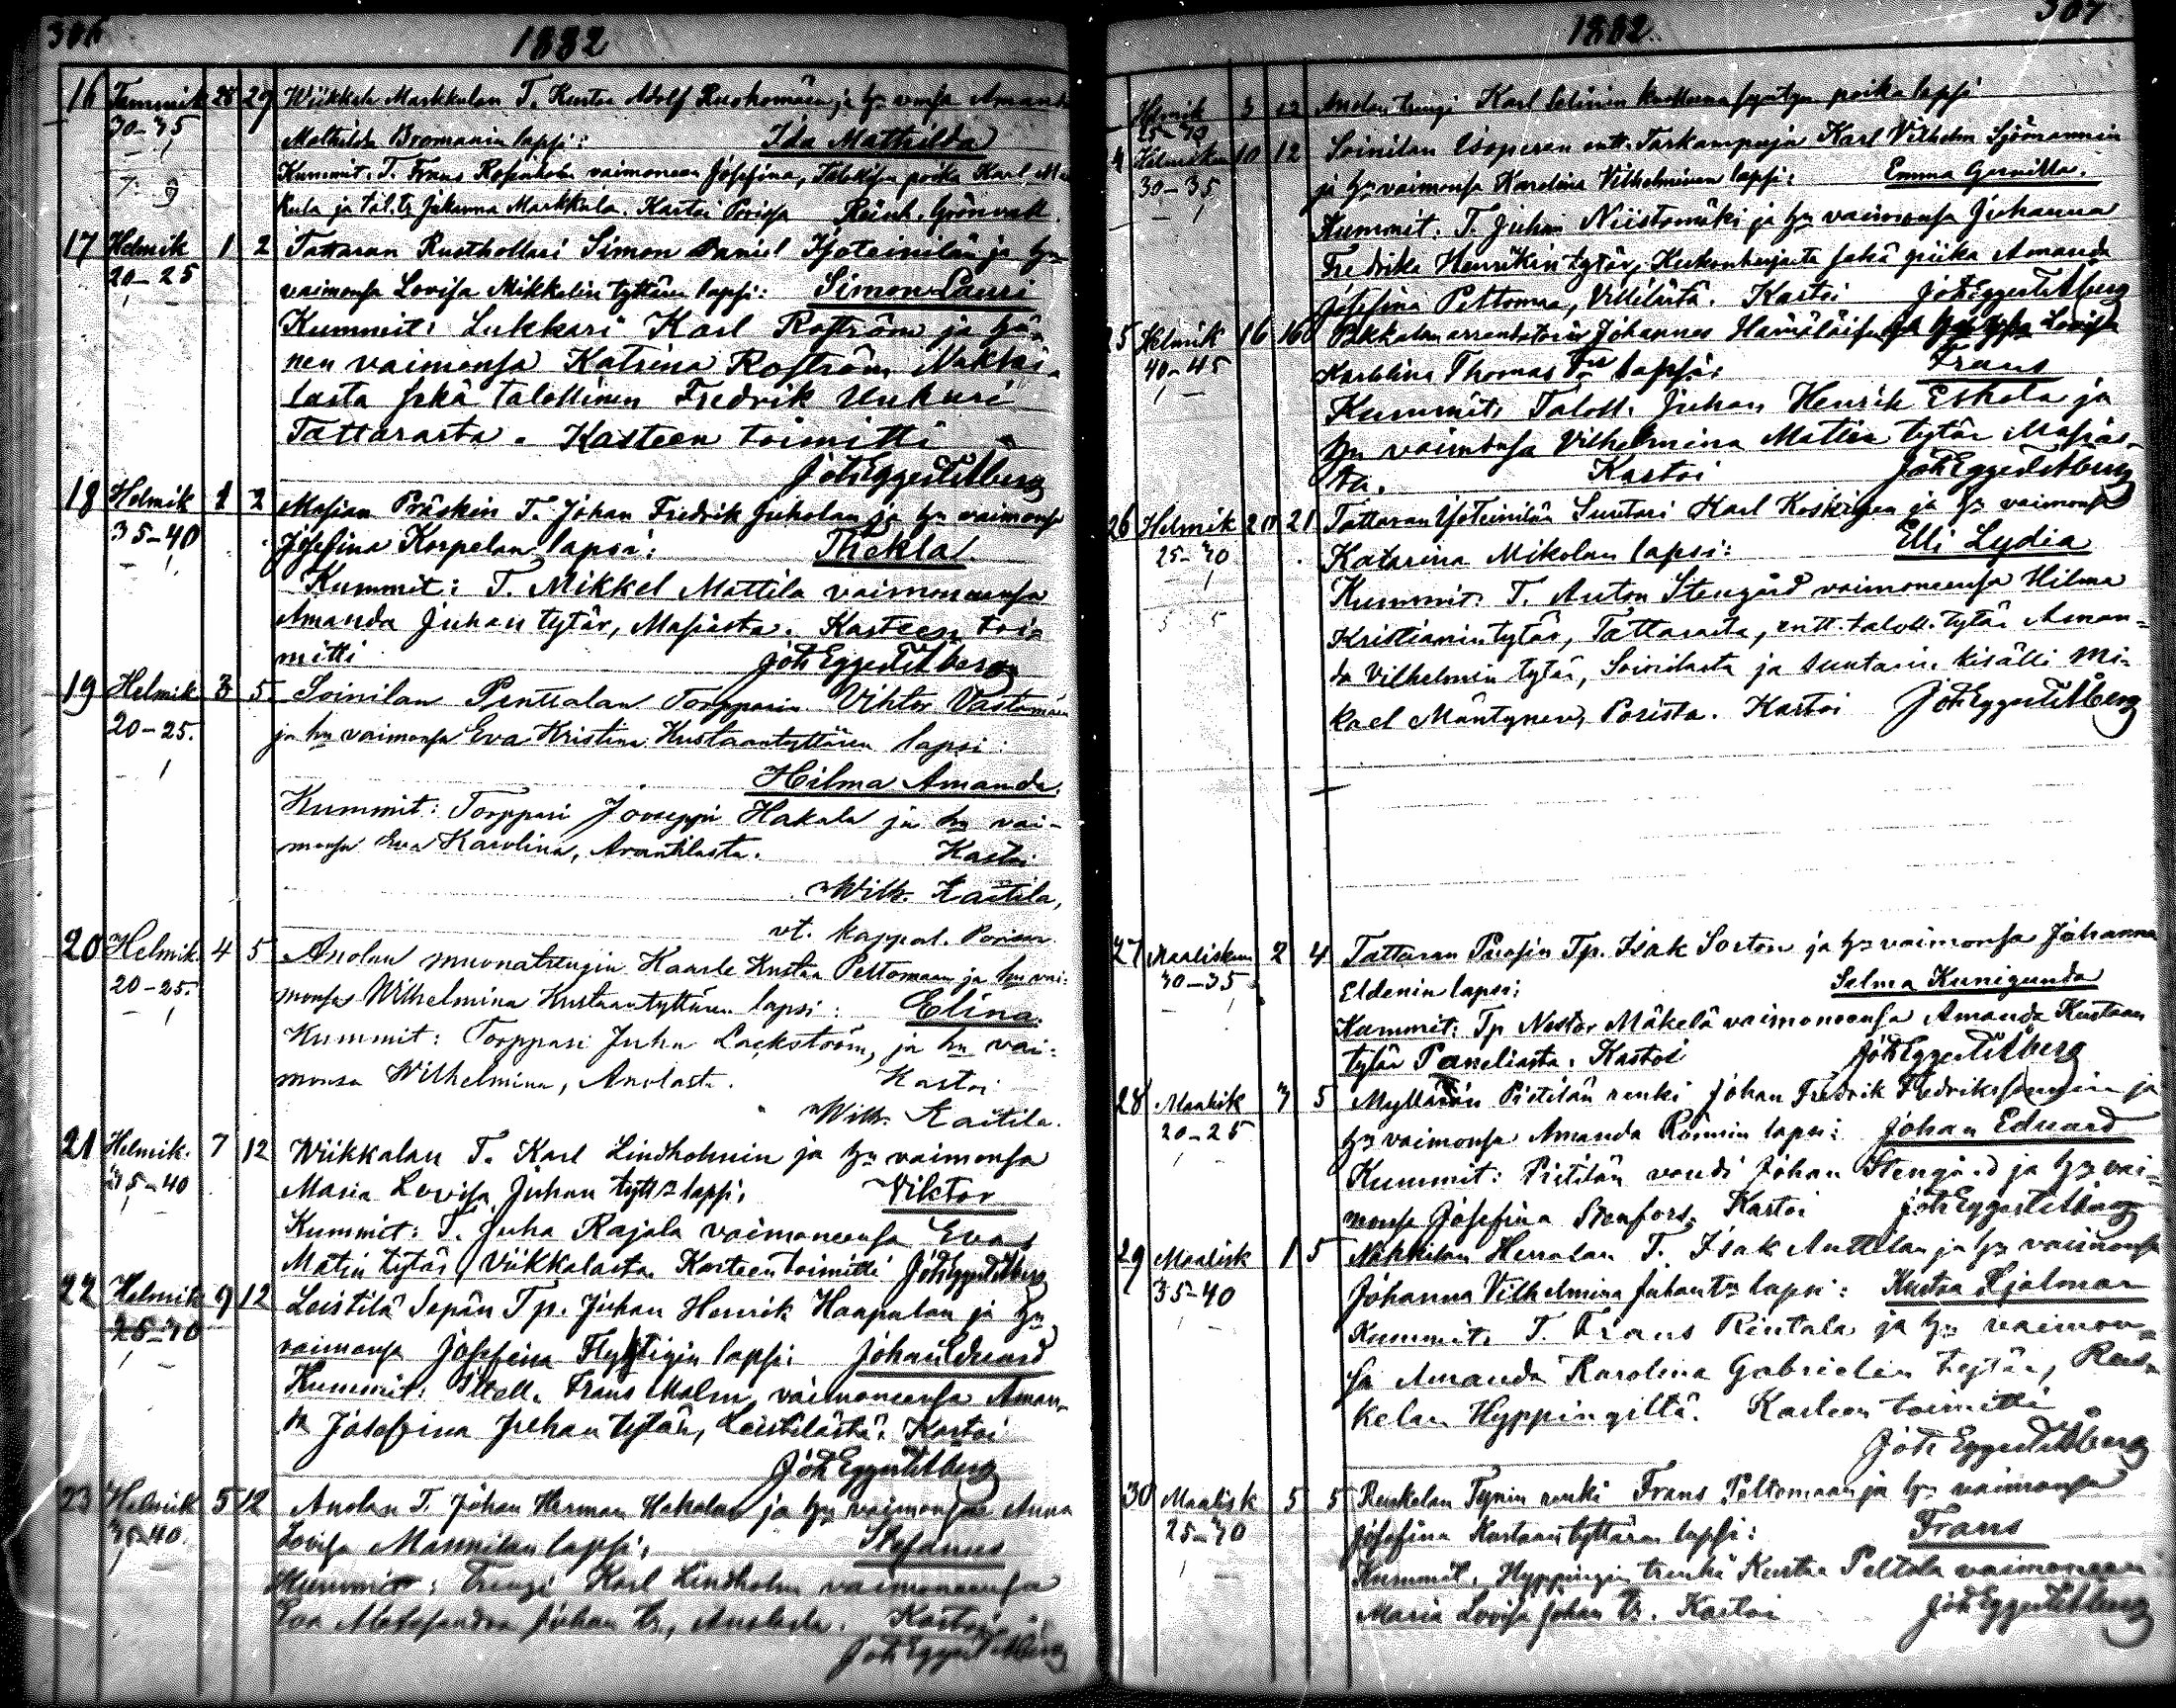 306
1882
16 Tammik 28 29 Wiikkala Markkulan T. Kustaa Adolf Ruohomäen ja hn vaimonsa Amanda
30-35 Mathilda Bromanin lapsi: Ida Mathilda
Kummit. T. Frans Rosenholm vaimoneen Josefina, poika Karl
ja tal. tr Johanna Markkula. Kastoi Porissa Reinh. Grönvall.
17 Helmik 1 2 Tattaran Rusthollari Simon Daniel Isoteinilän ja hn
20-25 vaimonsa Lovisa Mikkelin tyttären lapsi: Simon Lauri
Kummit: Lukkari Karl Roström ja hä-
nen vaimonsa Katrina Roström Nakki-
lasta sekä talollinen Fredrik Uukuri
Tattarasta. Kasteen toimitti
Joh Eggert Åberg
18 Helmik 1 2 Masian Präskin T. Johan Fredrik Juholan ja hn vaimonsa
35-40 Josefina Korpelan lapsi: Thekla
Kummit: T. Mikkel Mattila vaimoneensa
Amanda Juhan tytär, Masiasta. Kasteen toi-
mitti Joh Eggert Åberg
19 Helmik 3 5 Soinilan Penttalan Torpparin Vihtor Vastamäen
20-25. ja hn vaimonsa Eva Kristina Kustaantyttären lapsi:
Hilma Amanda.
Kummit: Torppari Jooseppi Hakala ja hn vai-
monsa Eva Karolina, Arantilasta. Kastoi
Wilh. Kaitila,
vt. kappal. Porissa
20 Helmik. 4 5 Anolan muonatrengin Kaarle Kustaa Peltomaan ja hn vai-
20-25. monsa Wilhelmina Kustaantyttären lapsi: Elina.
Kummit: Torppari Juha Lackström, ja hn vai-
monsa Wilhelmina, Anolasta. Kastoi
Wilh. Kaitila.
21 Helmik. 7 12 Wiikkalan T. Karl Lindholmin ja hn vaimonsa
35-40 Maria Lovisa Juhan tytt:n lapsi, Viktor
Kummit: T. Juha Rajala vaimoneensa Eva
Matin tytär Viikkalasta. Kasteen toimitti Joh Eggert Åberg
22 Helmik 9 12 Leistilä Sepän Tp. Juhan Henrik Haapalan ja hn
25-30 vaimonsa Josefina lapsi: Johan Eduard
Kummit: Frans Malm, vaimoneensa Aman-
da Josefina Juhan tytär, Leistilästä. Kastoi
Joh Eggert Åberg
23 Helmik 5 12 Anolan T. Johan Herman Hakalan ja hn vaimonsa Anna
35-40. Lovisa Mannilan lapsi, Stefanus
Kummit: Trengi Karl Lindholm vaimoneensa
Eva Juhan tr, Anolasta. Kastoi
Joh Eggert Åberg
307
1882.
Helmik 3 12 Anolan trengi Karl Selinin kuolleena syntyn poika lapsi
4 Helmikuu 10 12 Soinilan Isoperen entt. Karl Vilhelm Sjömannin
30-35 ja hn vaimonsa Karolina Vilhelminan lapsi: Emma
Kummit. T. Juhan Niistomäki ja hn vaimonsa Juhanna
Fredrika Henrikin tytär, sekä piika Amanda
Josefina Peltomaa, Villilästä. Kastoi Joh Eggert Åberg
25 Helmik 16 16 Pakkalan arrendatorin Johannes Hämäläisen ja hn vaimonsa Lovisa
40-45 Karolina Thomas Trn lapsi: Frans
Kummit, Taloll. Juhan Henrik Eskola ja
hn vaimonsa Vilhelmina Matin tytär Masias-
ta. Kastoi Joh Eggert Åberg
26 Helmik 21 Tattaran Isoteinilän Suutari Karl Koskisen ja hn vaimonsa
25-30 Katarina Mikolan lapsi: Elli Lydia
Kummit. T. Anton Stengård vaimoneensa Hilma
Kristianin tytär, Tattarasta, entt. taloll. tytär Aman-
da Vilhelmin tytär, Soinilasta ja suutarin kisälli Mi-
kael Mäntynen, Porista. Kastoi Joh Eggert Åberg
27 Maaliskuu 2 4 Tattaran Tp. Isak Sorton ja hn vaimonsa Johanna
30-35 Eldenin lapsi; Selma Kunigunda
Kummit: Tp Nestor Mäkelä vaimoneensa Amanda Kustaan
tytär Paneliasta. Kastoi Joh Eggert Åberg
28 Maalisk 3 5 Pistilän renki Johan Fredrik Fredrikssonnin ja
20-25 hn vaimonsa Amanda lapsi: Johan Eduard
Kummit: Pistilän voudi Johan Stengård ja hn vai-
monsa Josefina Stenfors. Kastoi Joh Eggert Åberg
29 Maalisk 1 5 Nakkilan Herralan T. Isak Anttilan ja hn vaimonsa
35-40 Johanna Vilhelmina Juhan tr lapsi: Kustaa Hjalmar
Kummit. T. Frans Rintala ja hn vaimon-
sa Amanda Karolina Gabrielin tytär, Rus-
kelan Hyppingiltä. Kasteen toimitti
Joh Eggert Åberg
30 Maalisk 5 5 Ruskelan renki Frans Peltomaan ja hn vaimonsa
25-30 Josefina Kustaan tyttären lapsi: Frans
Kummit. Hyppingin trenki Kustaa Peltola vaimoneen
Maria Lovisa Johan tr. Kastoi Joh Eggert Åberg